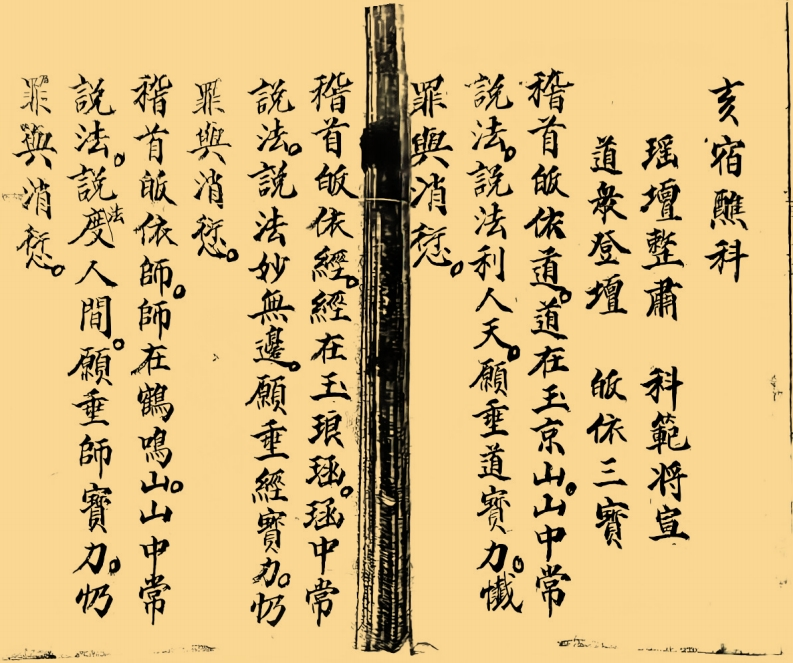 亥宿醮科
瑶壇整肅　科範将宣
道衆登壇　皈依三寳
稽首皈依道。道在玉京山。山中常
說法。說法利人天。願垂道寳力。懺
罪與消愆。
稽首皈依經。經在玉琅函。函中常
說法。說法妙無邊。願垂經寳力。仍
罪與消愆。
稽首皈依師。師在鶴鳴山。山中常
說法。說法度人間。願垂師寳力。仍
罪與消愆。